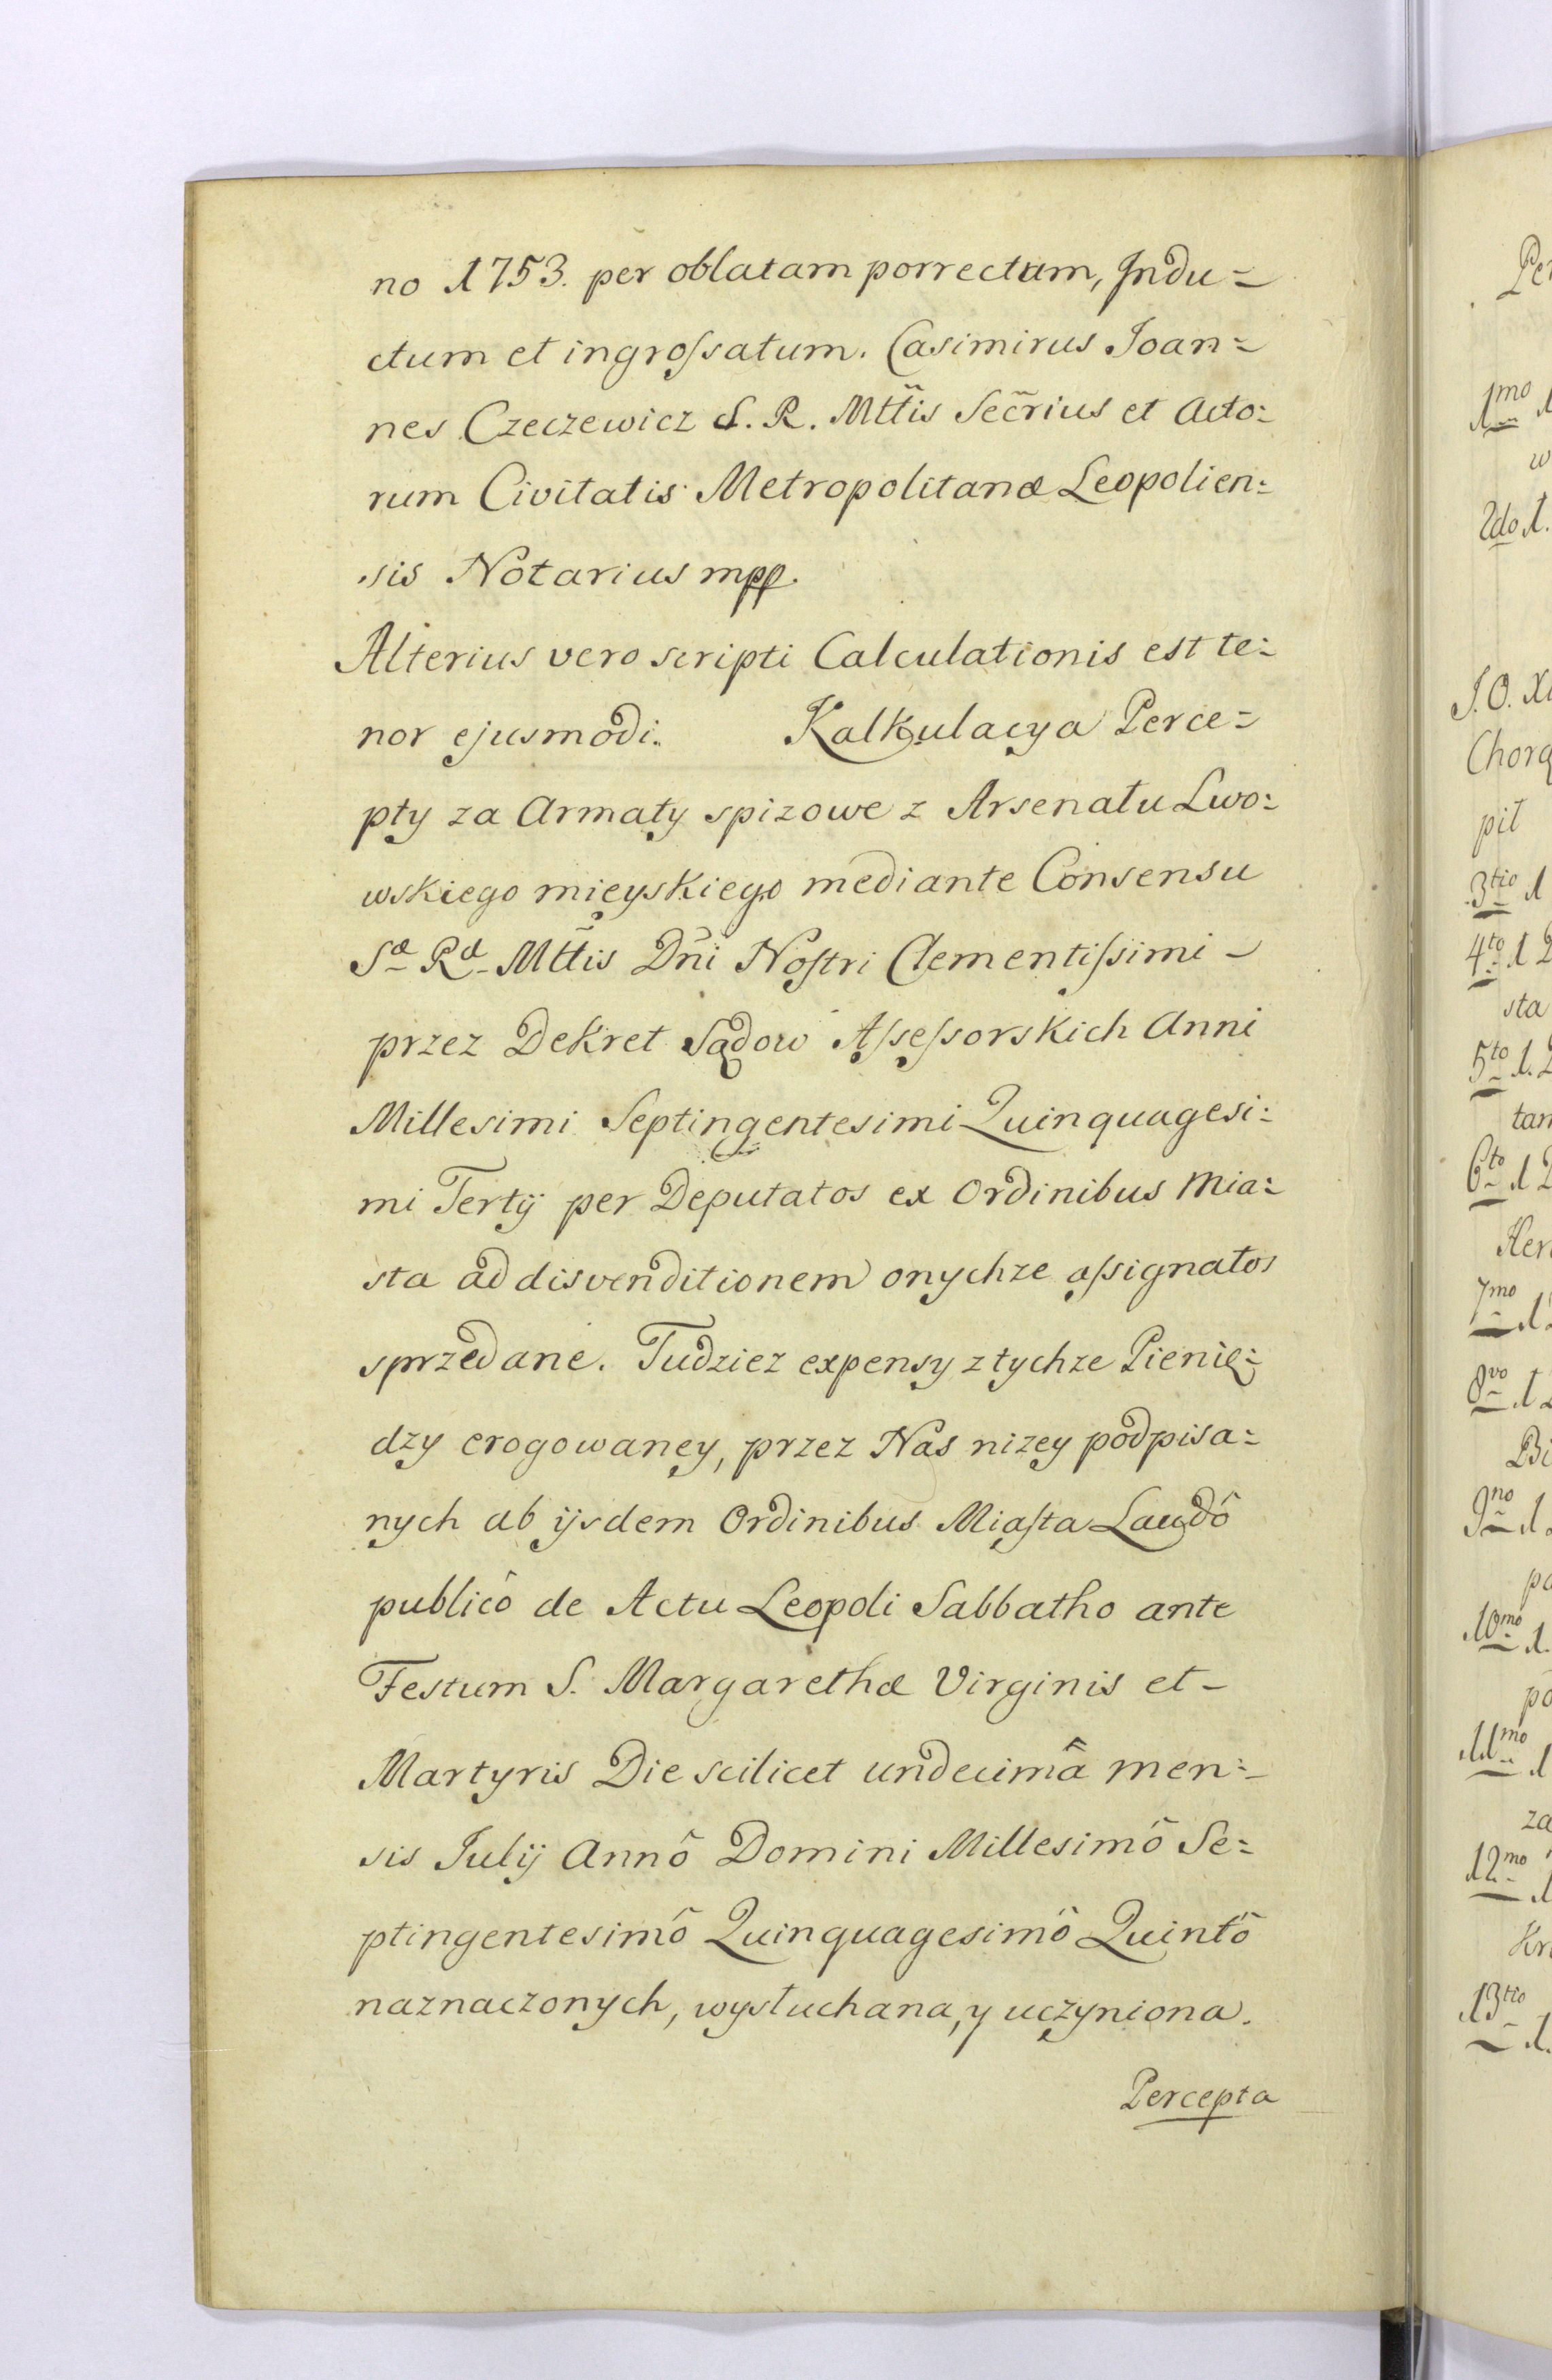 no 1753. per oblatam porrectum, Indu=
ctum et ingroſsatum. Casimirus Joan=
nes Czeczewicz S. R. Mttis Secrius et Acto=
rum Civitatis Metropolitanæ Leopolien=
sis Notarius mpp.
Alterius vero scripti Calculationis est te=
nor ejusmodi. Kalkulacya Perce=
pty za Armaty spizowe z Arsenatu Lwo=
wskiego mieyskiego mediante Consensu
Sæ Ræ Mttis Dni Noſtri Clementiſsimi -
przez Dekret Sądow Aſseſsorskich Anni
Millesimi Septingentesimi Quinquagesi=
mi Tertÿ per Deputatos ex Ordinibus Mia=
sta ad disvenditionem onychze aſsignatos
sprzedane. Tudziez expensy z tychze Pienię=
dzy erogowaney, przez Nas nizey podpisa=
nych ab ijsdem Ordinibus Miaſta Laudô
publicô de Actu Leopoli Sabbatho ante
Festum S. Margarethæ Virginis et -
Martyris Die scilicet undecimâ men=
sis Julÿ Annô Domini Millesimô Se=
ptingentesimô Quinquagesimô Quintô
naznaczonych, wysłuchana, y uczyniona.
Percepta
1mo
2do
J. O.
pił
3tio
4to
sta
5to
6to
7mo
8vo
9no
10mo
11mo
za
12mo
13tio